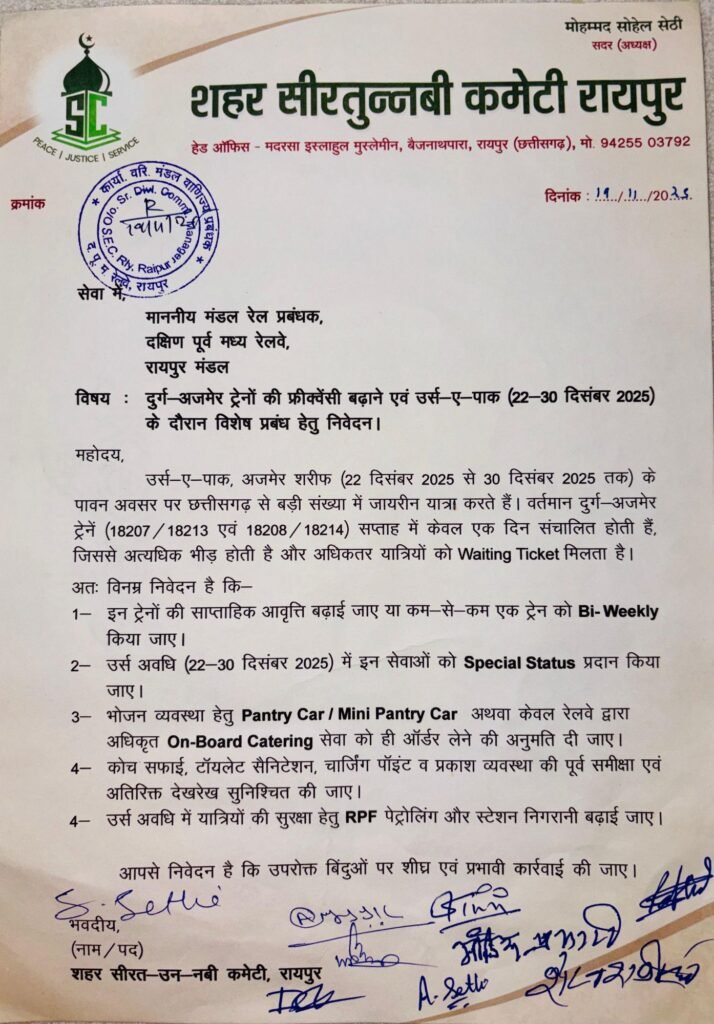 मोहम्मद सोहेल सेठी
सदर (अध्यक्ष)
SC
PEACE | JUSTICE | SERVICE
शहर सीरतुन्नबी कमेटी रायपुर
हेड ऑफिस - मदरसा इस्लाहुल मुस्लेमीन, बैजनाथपारा, रायपुर (छत्तीसगढ़), मो. 94255 03792
क्रमांक
दिनांक : 19/11/2025
कार्या. वरि. मंडल वाणिज्य प्रबंधक
O/o. Sr. Divl. Comml. Manager
S.E.C. Rly. Raipur
द. पू. म. रेलवे, रायपुर
R
19/11/25
सेवा में,
माननीय मंडल रेल प्रबंधक,
दक्षिण पूर्व मध्य रेलवे,
रायपुर मंडल
विषय : दुर्ग–अजमेर ट्रेनों की फ्रीक्वेंसी बढ़ाने एवं उर्स–ए–पाक (22–30 दिसंबर 2025)
के दौरान विशेष प्रबंध हेतु निवेदन।
महोदय,
उर्स–ए–पाक, अजमेर शरीफ (22 दिसंबर 2025 से 30 दिसंबर 2025 तक) के
पावन अवसर पर छत्तीसगढ़ से बड़ी संख्या में जायरीन यात्रा करते हैं। वर्तमान दुर्ग–अजमेर
ट्रेनें (18207/18213 एवं 18208/18214) सप्ताह में केवल एक दिन संचालित होती हैं,
जिससे अत्यधिक भीड़ होती है और अधिकतर यात्रियों को Waiting Ticket मिलता है।
अतः विनम्र निवेदन है कि–
1– इन ट्रेनों की साप्ताहिक आवृत्ति बढ़ाई जाए या कम–से–कम एक ट्रेन को Bi-Weekly
किया जाए।
2– उर्स अवधि (22–30 दिसंबर 2025) में इन सेवाओं को Special Status प्रदान किया
जाए।
3– भोजन व्यवस्था हेतु Pantry Car / Mini Pantry Car अथवा केवल रेलवे द्वारा
अधिकृत On-Board Catering सेवा को ही ऑर्डर लेने की अनुमति दी जाए।
4– कोच सफाई, टॉयलेट सैनिटेशन, चार्जिंग पॉइंट व प्रकाश व्यवस्था की पूर्व समीक्षा एवं
अतिरिक्त देखरेख सुनिश्चित की जाए।
4– उर्स अवधि में यात्रियों की सुरक्षा हेतु RPF पेट्रोलिंग और स्टेशन निगरानी बढ़ाई जाए।
आपसे निवेदन है कि उपरोक्त बिंदुओं पर शीघ्र एवं प्रभावी कार्रवाई की जाए।
S. Sethi
भवदीय,
(नाम/पद)
शहर सीरत–उन–नबी कमेटी, रायपुर
A. Sethi